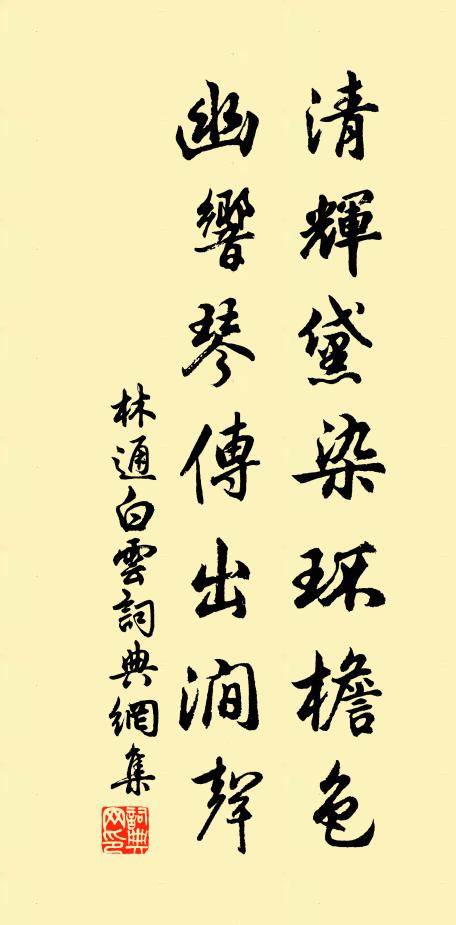 清輝黛染环檐色
幽響琴傳出澗聲
林通白雲詞典網集
詞典網印